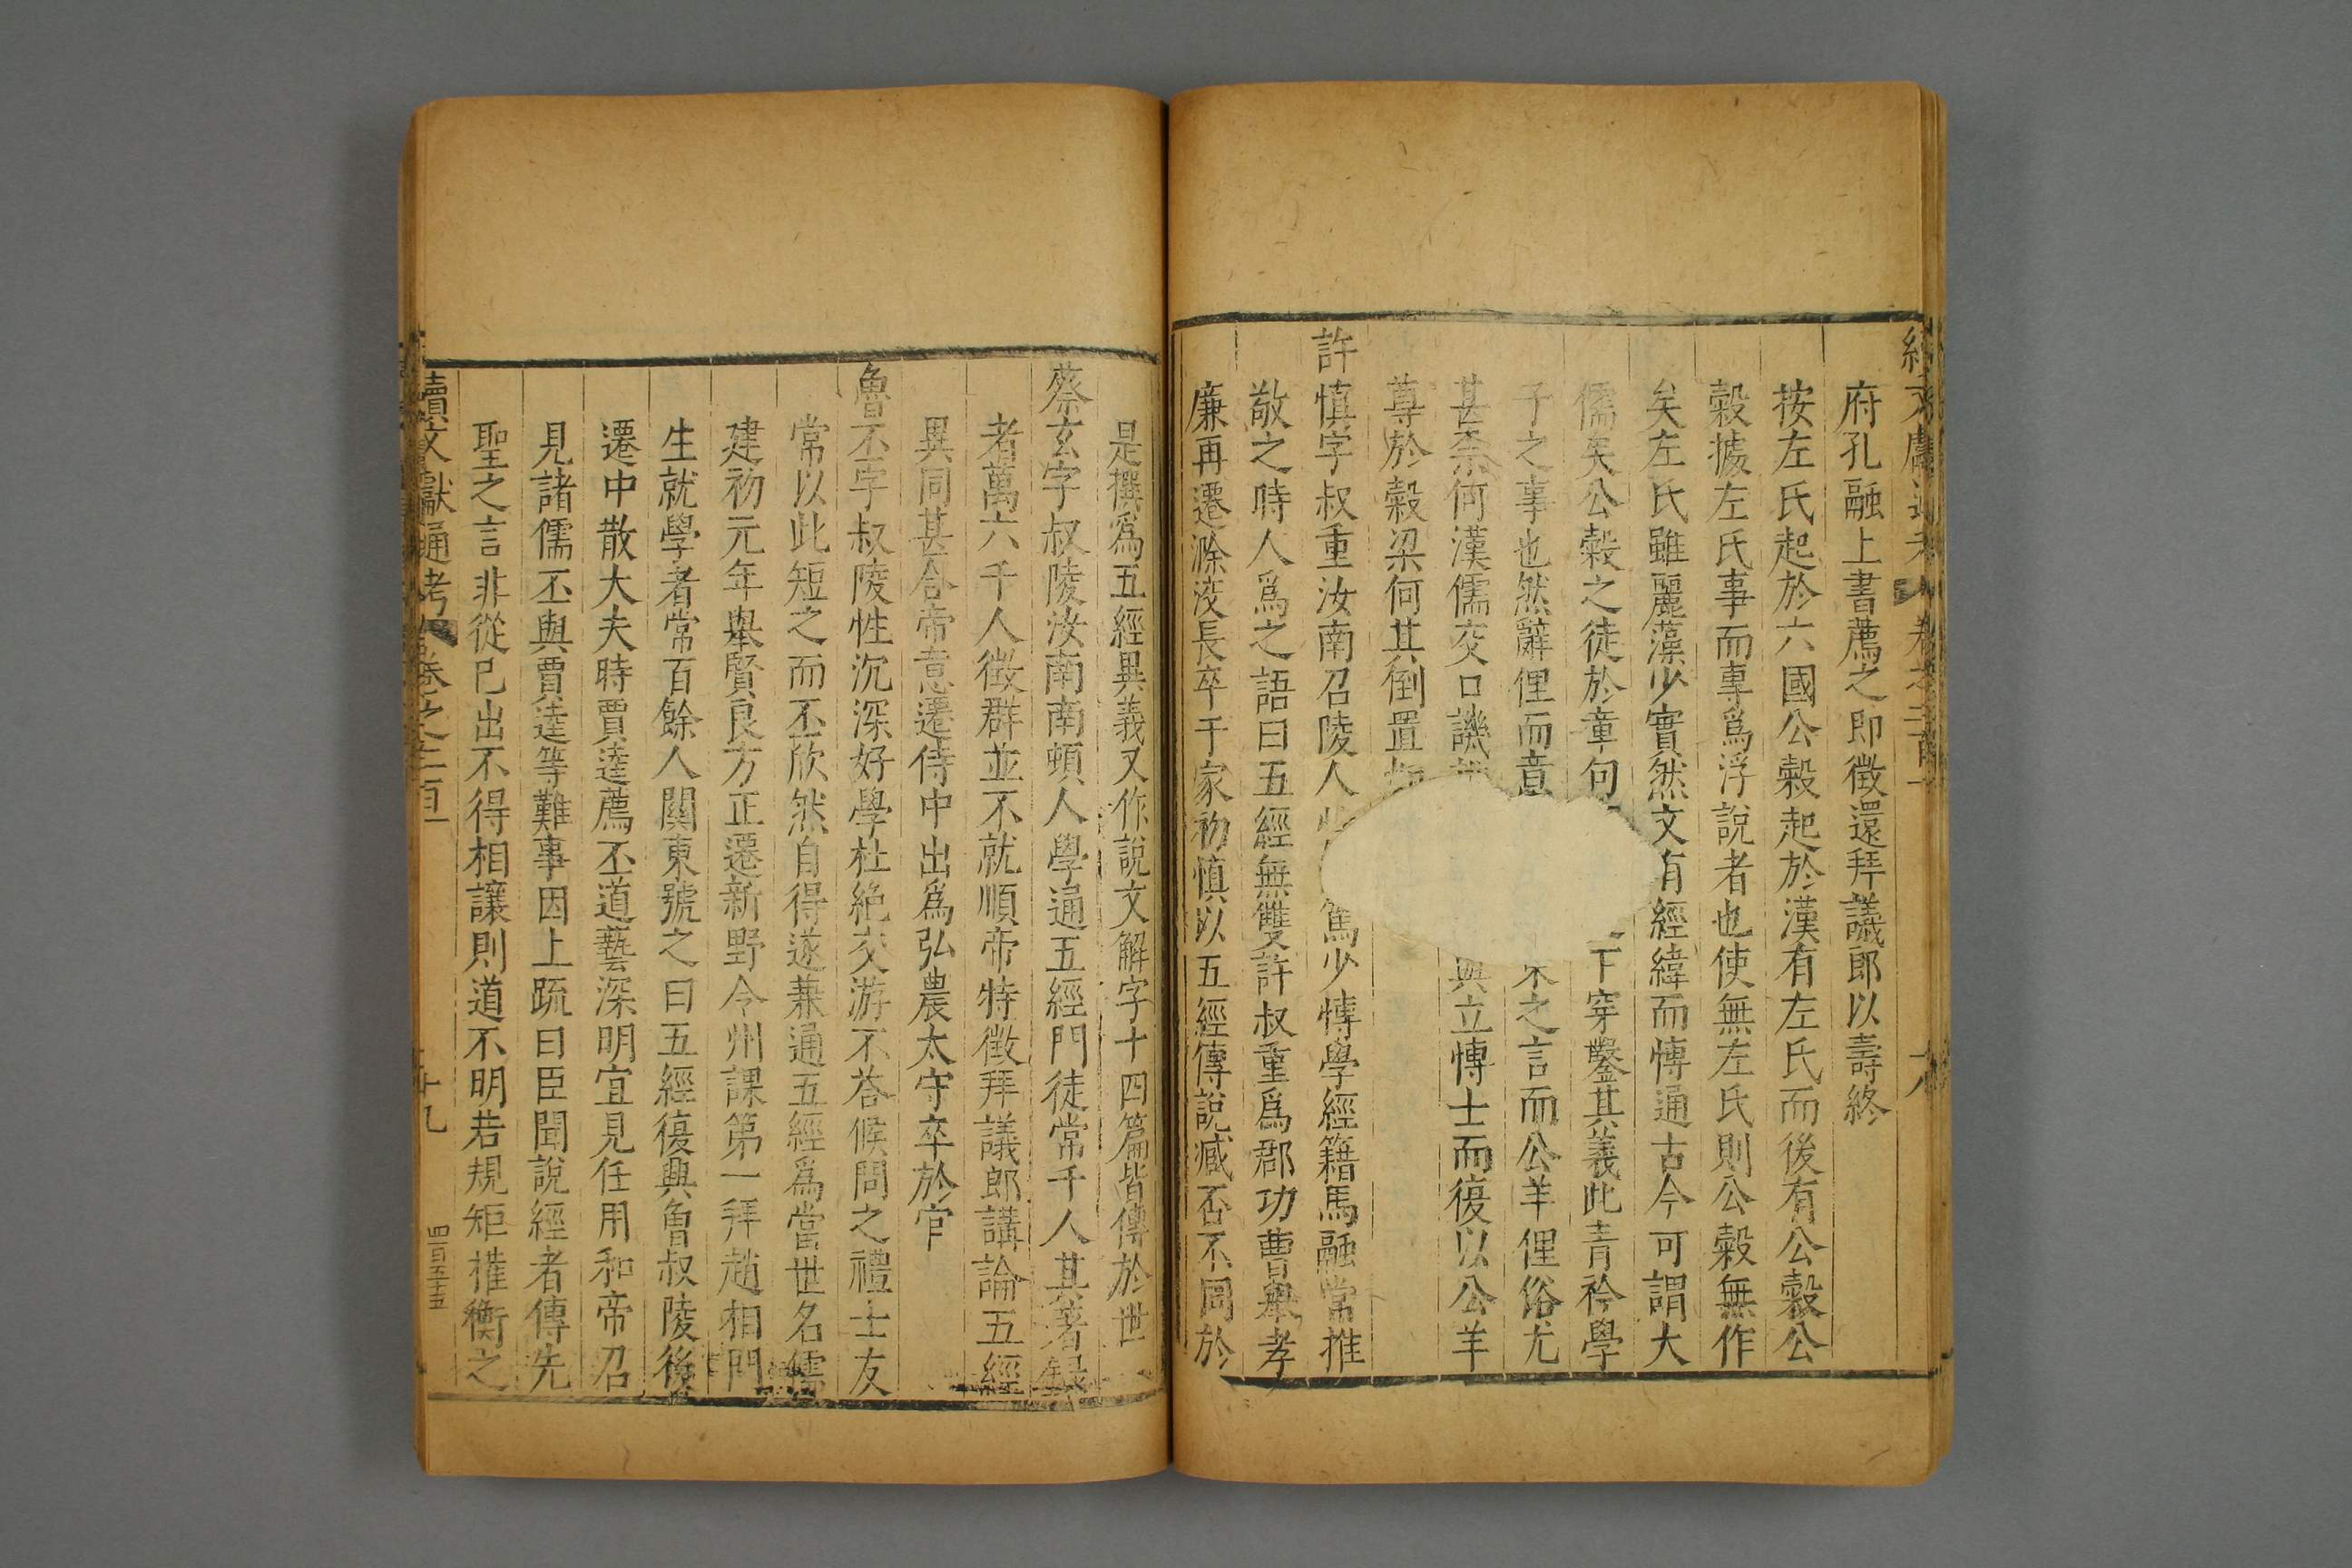 府孔融上書薦之即徵還拜議郎以壽終
按左氏起於六國公穀起於漢有左氏而後有公穀公
穀據左氏事而專爲浮說者也使無左氏則公穀無作
矣左氏雖麗藻少實然文有經緯而愽通古今可謂大
儒矣公穀之徒於章句 下穿鑿其義此青衿學
子之事也然辭俚而意 之言而公羊俚俗尤
甚柰何漢儒交口譏 與立愽士而復以公羊
尊於穀梁何其倒置
許慎字叔重汝南召陵人 篤少愽學經籍馬融常推
敬之時人爲之語曰五經無雙許叔重爲郡功曹舉孝
廉再遷滁洨長卒于家初慎以五經傳說臧否不同於
是撰爲五經異義又作說文解字十四篇皆傳於世
蔡玄字叔陵汝南南頓人學通五經門徒常千人其著録
者萬六千人徵群並不就順帝特徵拜議郎講論五經
異同甚合帝意遷侍中出爲弘農太守卒於官
魯丕字叔陵性沉深好學杜絶交游不荅候問之禮士友
常以此短之而丕欣然自得遂兼通五經爲當世名儒
建初元年舉賢良方正遷新野令州課第一拜趙相門
生就學者常百餘人關東號之曰五經復興魯叔陵後
遷中散大夫時賈逵薦丕道藝深明宜見任用和帝召
見諸儒丕與賈逵等難事因上疏曰臣聞說經者傳先
聖之言非從已出不得相讓則道不明若規矩權衡之
續文獻通考 卷之二百一 十九 四百五十五